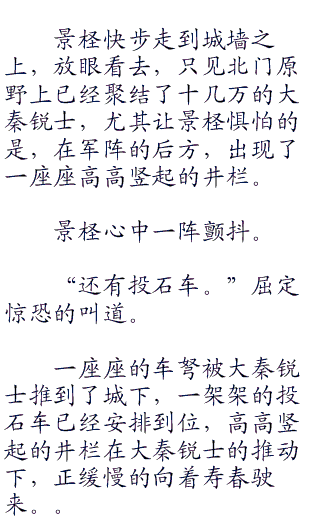 景柽快步走到城墙之
上，放眼看去，只见北门原
野上已经聚结了十几万的大
秦锐士，尤其让景柽惧怕的
是，在军阵的后方，出现了
一座座高高竖起的井栏。
景柽心中一阵颤抖。
“还有投石车。”屈定
惊恐的叫道。
一座座的车弩被大秦锐
士推到了城下，一架架的投
石车已经安排到位，高高竖
起的井栏在大秦锐士的推动
下，正缓慢的向着寿春驶
来。。